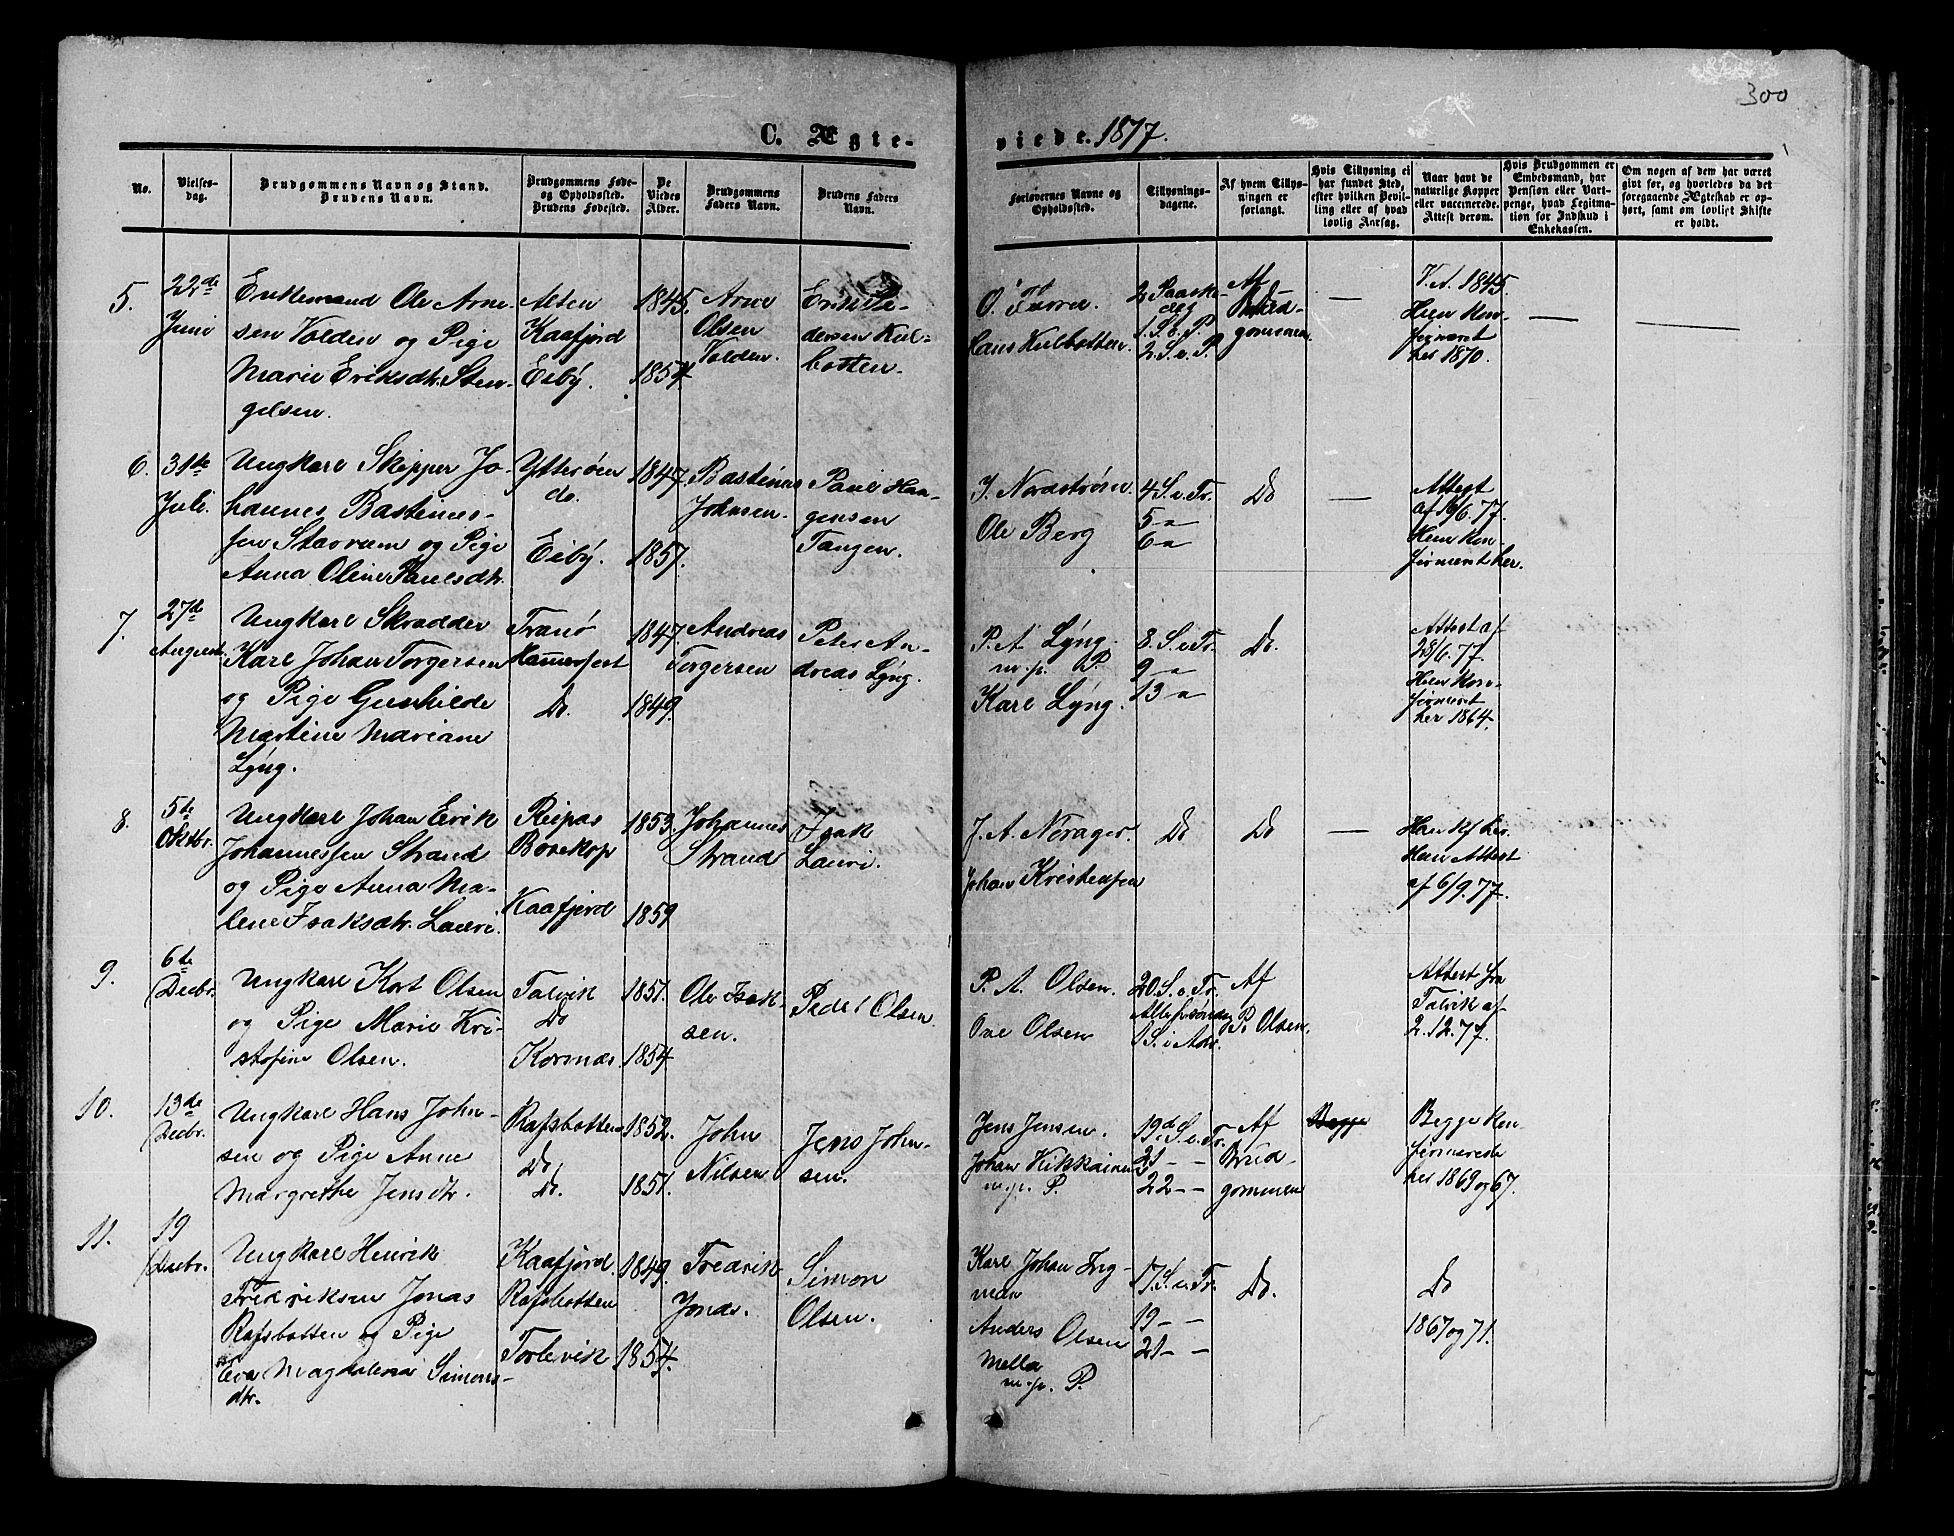 300
C. Ægte-
viede. 1877.
No.
Vielses-
dag.
Brudgommens Navn og Stand.
Brudens Navn.
Brudgommens Føde-
og Opholdssted.
Brudens Fødested.
De
Viedes
Alder.
Brudgommens
Faders Navn.
Brudens Faders
Navn.
Forlovernes Navne og
Opholdssted.
Tillysnings-
dagene.
Af hvem Tillys-
ningen er
forlangt.
Hvis Tillysning ei
har fundet Sted,
efter hvilken Bevil-
ling eller af hvad
lovlig Aarsag.
Naar havt de
naturlige Kopper
eller vaccinerede.
Attest derom.
Hvis Brudgommen er
Embedsmand, har
Pension eller Vart-
penge, hvad Legitma-
tion for Indskud i
Enkekassen.
Om nogen af dem har været
givt før, og hvorledes da det
foregaaende Ægteskab er op-
hørt, samt om lovligt Skifte
er holdt.
5.
22de
Juni
Enkemand Ole Arne-
sen Volden og Pige
Marie Eriksdtr. Sten-
gelsen.
Alten
Kaafjord
Eiby.
1845.
1854.
Arne
Olsen
Volden.
Erik Pe-
dersen Kul-
botten.
O. Furre.
Hans Kulbotten.
2 Paaske
dag
1. S. e. P.
2. S. e. P.
Af
Brud-
gommen.
V. A. 1845.
Hun Kon-
firmeret
her 1870.
6.
31te
Juli.
Ungkarl Skipper Jo-
hannes Bastinus-
sen Stavrum og Pige
Anna Oline Paulsdtr.
Ytterøen
do.
Eiby.
1847.
1857.
Bastinus
Johnsen.
Paul Haa-
gensen
Tangen.
J. Nordstrøm.
Ole Berg
4 S. e. Tr.
5 - "
6 - "
Do
Attest
af 16/6. 77.
Hun Kon-
firmeret her.
7.
27de
August.
Ungkarl Skrædder
Karl Johan Torgersen
og Pige Gunhilde
Martine Mariane
Lyng.
Tranø
Hammerfest
Do.
1847.
1849.
Andreas
Torgersen
Peter An-
dreas Lyng.
P. A. Lyng.
m. p. P.
Karl Lyng.
8. S. e. Tr.
9 - "
13 - "
Do.
Attest af
28/6. 77.
Hun Kon-
firmeret
her 1864.
8.
5te
Oktbr.
Ungkarl Johan Erik
Johannessen Strand
og Pige Anna Ma-
lene Isaksdtr. Lauri.
Reipas
Bosekop
Kaafjord
1853.
1859
Johannes
Strand
Isak
Lauri.
J. A. Nerager.
Johan Kristensen
Do
Do
Han Kf. her.
Hun Attest
af 6/9. 77.
9.
6te
Decbr.
Ungkarl Kort Olsen
og Pige Marie Kri-
stofine Olsen.
Talvik
Do
Korsnæs.
1851.
1854
Ole Isak-
sen.
Peder Olsen.
P. A. Olsen.
Ove Olsen
20. S. e. Tr.
Allehelgensdag
1 S. i Adv.
Af
P. Olsen.
Attest fra
Talvik af
2. 12. 77.
10.
13de
Decbr.
Ungkarl Hans John-
sen og Pige Anne
Margrethe Jensdtr.
Rafsbotten
Do
Do.
1852.
1851.
John
Nilsen
Jens John-
sen.
Jens Jensen.
Johan Kikkainen
m. p. P.
19de S. e. Tr.
21 - -
22 - -
Af
Brud-
gommen
Begge
Begge Kon-
firmerede
her 1869 og 67.
11.
19
Decbr.
Ungkarl Henrik
Fredriksen Jonas
Rafsbotten og Pige
Eva Magdalena Simons-
dtr.
Kaafjord.
Rafsbotten
Torlevik
1849.
1854.
Fredrik
Jonas.
Simon
Olsen.
Karl Johan Ing-
man
Anders Olsen
Mella
m. p. P.
17. S. e. Tr.
19 - -
21 - -
Do.
Do
1867 og 71.